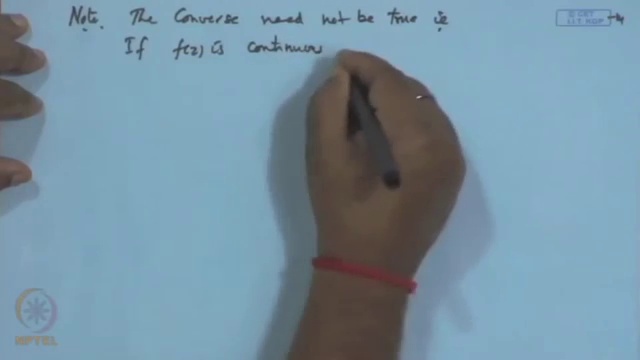 Note. The Converse need not be true ie
If f(z) is continuous
© CET
I.I.T. KGP
NPTEL